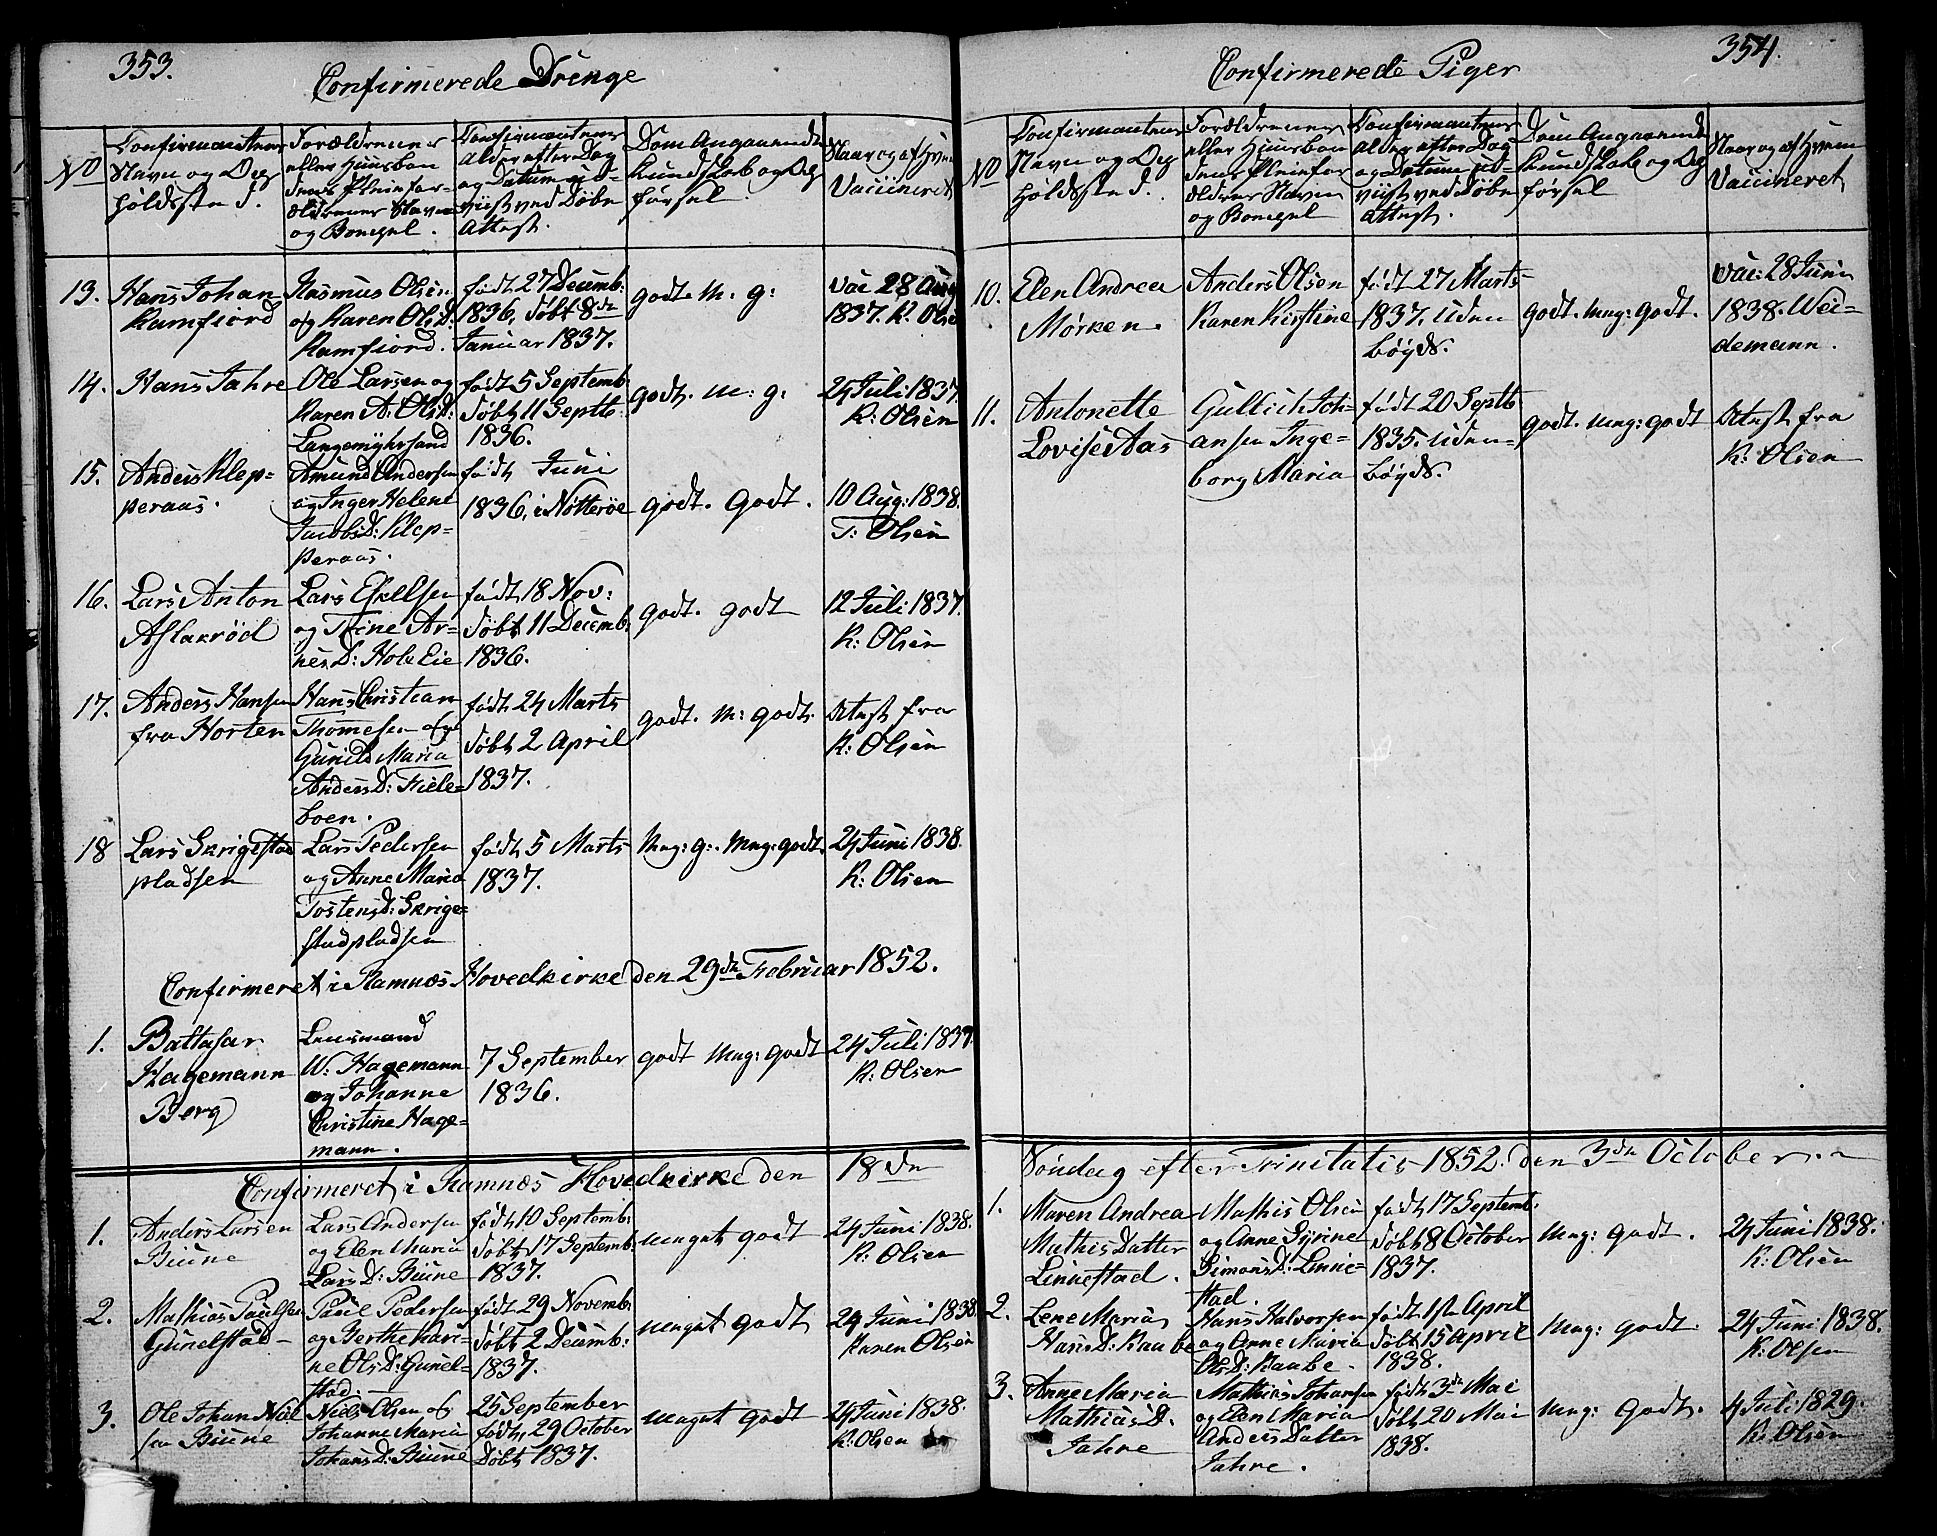 353.
Confirmerede Drenge
No
Confirmantens
Navn og Op
holdssted.
Forældrenes
eller Huusbon
dens Pleiefor
ældrenes Navn
og Bopæl.
Confirmantens
Alder efter Dag
og Datum ud-
viist ved Døbe
Attest.
Dom Angaaende
Kundskab og Op
førsel.
Naar og af hvem
Vacineret
13.
Hans Johan
Ramfiord
Rasmus Olsen
og Karen Ols D:
Ramfiord.
født 27 Decemb:
1836, døbt 8de
Januar 1837.
godt. m. g:
Vac 28 Aug
1837. K. Olse
14.
Hans Jahre
Ole Larsen og
Karen A: Ols D:
Langemyhrsand
født 5 Septemb:
døbt 11 Septbr:
1836.
godt. m: g:
24 Juli 1837.
K: Olsen
15.
Anders Klep-
peraas.
Amund Andersen
og Inger Helene
Jacobs D: Klep-
peraas.
født Juni
1836, i Nøtterøe
godt. Godt.
10 Aug: 1838.
T: Olsen
16.
Lars Anton
Aslakrød
Lars Eskelsen
og Trine Ar-
nes D: Holt Eie
født 18 Nov:
døbt 11 Decemb:
1836.
godt. godt
12 Juli 1837.
K: Olsen
17.
Anders Hansen
fra Horten
Hans Christian
Thomesen og
Gunild Maria
Anders D: Fiele-
boen.
født 24 Marts
døbt 2 April
1837.
godt. m: godt.
Attest fra
K: Olsen
18
Lars Skrigestad
pladsen
Lars Pedersen
og Anne Maria
Tostens D: Skrige-
stadpladsen
født 5 Marts
1837.
Mag: g:. Mag: godt.
24 Juni 1838.
K: Olsen
Confirmeret i Ramnæs Hovedkirke den 29de Februar 1852.
1.
Baltasar
Hagemann
Berg
Lensmand
W. Hagemann
og Johanne
Christine Hage-
mann.
7 September
1836.
godt Mag: godt
24 Juli 1837.
K: Olsen
Confirmeret i Ramnæs Hovedkirke den 18de
1.
Anders Larsen
Biune
Lars Andersen
og Elen Maria
Lars D: Biune
født 10 Septemb:
døbt 17 Septemb:
1837.
meget godt
24 Juni 1838.
K: Olsen
2.
Mathias Paulsen
Gunelstad
Paul Pedersen
og Berthe Kari-
ne Ols D: Gunel-
stad
født 29 Novemb:
døbt 2 Decemb:
1837.
meget godt
24 Juni 1838.
Karen Olsen
3.
Ole Johan Niel
sen Biune
Niels Olsen og
Johanne Maria
Johans D: Biune
25 September
født, 29 October
Døbt 1837.
meget godt
24 Juni 1838.
K: Olsen
354.
Confirmerede Piger
No
Confirmantens
Navn og Op
holdssted.
Forældrenes
eller Huusbon
dens Pleiefor
ældrenes Navn
og Bopæl
Confirmantens
Alder efter Dag
og Datum ud-
viist ved Døbe
Attest.
Dom Angaaende
Kundskab og Op
førsel
Naar og af hvem
Vacineret
10.
Elen Andrea
Mørken
Anders Olsen
Karen Kirstine
født 27 Marts
1837. uden
bøygds.
godt. mag: godt.
Vac: 28 Juni
1838. Wei-
demann.
11.
Antonette
Lovise Aas
Gullich Joh-
ansen Inge-
borg Maria
født 20 Septb
1835. uden-
bøygds.
godt. mag: godt
Attest fra
K: Olsen
Søndag efter Trinitatis 1852. den 3de October.
1.
Maren Andrea
Mathis Datter
Linnestad.
Mathis Olsen
og Anne Gurine
Simons D: Linne-
stad.
født 17 Septemb:
døbt 8 October
1837.
Mag: godt.
24 Juni 1838.
K: Olsen
2.
Lene Maria
Hans D: Kaabe
Hans Halvorsen
og Anne Maria
Ols D: Kaabe.
født 1ste April
døbt 15 April
1838.
Mag: godt.
24 Juni 1838.
K: Olsen
3.
Anne Maria
Mathias D:
Jahre
Mathias Johansen
og Elen Maria
Anders Datter
Jahre.
født 3de Mai
døbt 20 Mai
1838.
Mag: Godt.
4 Juli 1829.
K: Olsen